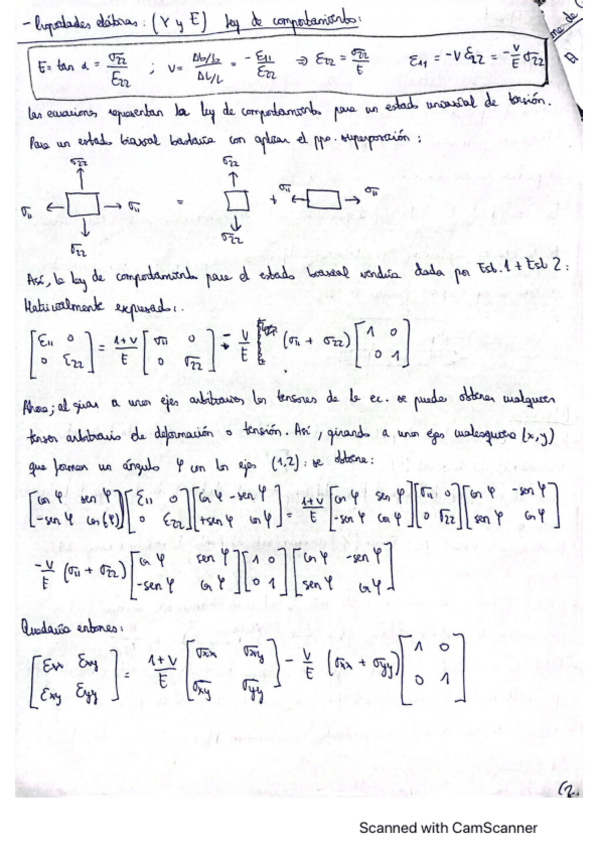 - Propiedades elásticas: (ν y E) Ley de comportamiento:
E = tan α = σ22/E22 ; ν = Δb/b / ΔL/L = -ε11/ε22 ⇒ ε22 = σ22/E ε11 = -ν ε22 = -ν/E σ22
Las ecuaciones representan la ley de comportamiento para un estado uniaxial de tensión.
Para un estado biaxial bastaría con aplicar el ppo. superposición:
σ22 σ22
σ11 ← → σ11 = + σ11 ← → σ11
σ22 σ22
Así, la ley de comportamiento para el estado biaxial vendría dada por Est. 1 + Est 2:
Matricialmente expresado:
[ε11 0 / 0 ε22] = 1+ν/E [σ11 0 / 0 σ22] - ν/E (σ11 + σ22) [1 0 / 0 1]
Ahora; al girar a unos ejes arbitrarios los tensores de la ec. se puede obtener cualquier
tensor arbitrario de deformación o tensión. Así, girando a unos ejes cualesquiera (x,y)
que forman un ángulo φ con los ejes (1,2): se obtiene:
[cos φ sen φ / -sen φ cos(φ)] [ε11 0 / 0 ε22] [cos φ -sen φ / +sen φ cos φ] = 1+ν/E [cos φ sen φ / -sen φ cos φ] [σ11 0 / 0 σ22] [cos φ -sen φ / sen φ cos φ]
-ν/E (σ11 + σ22) [cos φ sen φ / -sen φ cos φ] [1 0 / 0 1] [cos φ -sen φ / sen φ cos φ]
Quedaría entonces:
[εxx εxy / εxy εyy] = 1+ν/E [σxx σxy / σxy σyy] - ν/E (σxx + σyy) [1 0 / 0 1]
(2.
Scanned with CamScanner